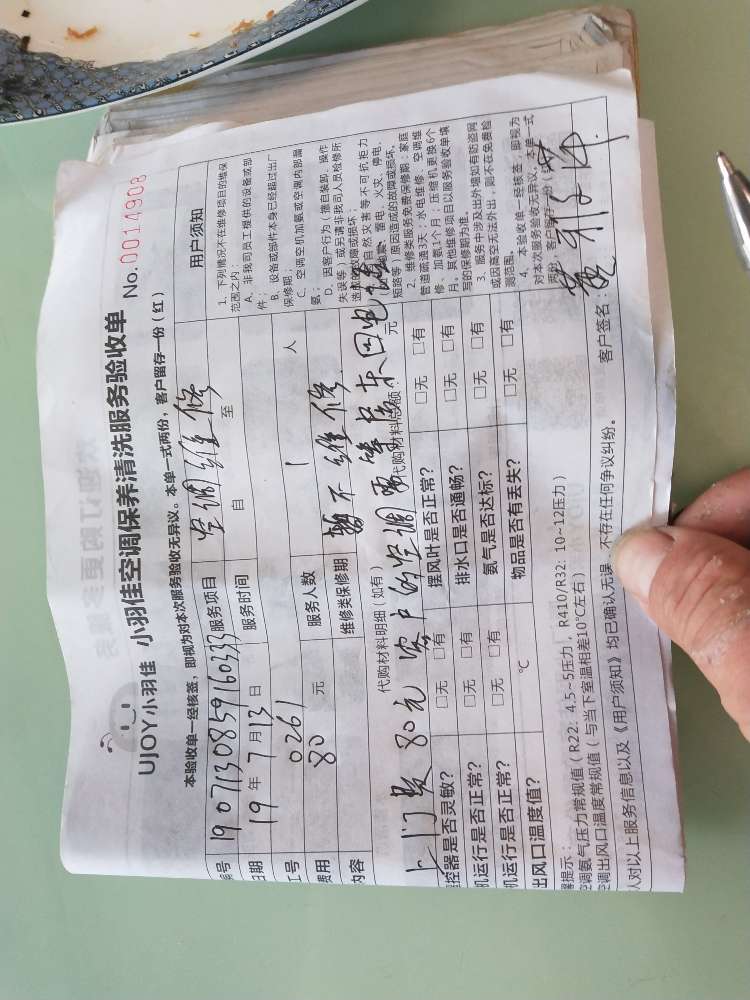 UJOY小羽佳 小羽佳空调保养清洗服务验收单 No.0014908
本验收单一经核签，即视为对本次服务验收无异议。本单一式两份，客户留存一份（红）
号 190713085916023 服务项目 空调维修
日期 19年7月13日 服务时间 自 至
工号 0261 服务人数 1 人
费用 80 元 维修类保修期 暂不维修
内容
代购材料明细（如有） 代购材料总额： 元
上门费80元 客户的空调要等房东回电
控器是否灵敏？ □无 □有 摆风叶是否正常？ □无 □有
机运行是否正常？ □无 □有 排水口是否通畅？ □无 □有
机运行是否正常？ □无 □有 氨气是否达标？ □无 □有
出风口温度值？ ℃ 物品是否有丢失？ □无 □有
提示：
空调氨气压力常规值（R22：4.5~5压力，R410/R32：10~12压力）
空调出风口温度常规值（与当下室温相差10℃左右）
人对以上服务信息以及《用户须知》均已确认无误，不存在任何争议纠纷。
客户签名：
用户须知
1、下列情况不在维修项目的维保
范围之内：
A、非我司员工提供的设备或部
件；
B、设备或部件本身已经超过出厂
保修期；
C、空调空机加氨或空调内部漏
氨；
D、因客户行为（擅自装卸、操作
失误等）或另请非我司人员检修所
造成的故障或损坏；
自然灾害等不可抗拒力
雷电、火灾、停电、
短路等）原因造成的故障或损坏。
2、维修类服务免费保修期：家庭
管道疏通3天；水电维修、空调维
修、加氨1个月；压缩机更换6个
月。其他维修项目以服务验收单填
写的保修期为准。
3、服务中涉及出外墙如有防盗网
或因高空无法外出，则不在免费检
测范围。
4、本验收单一经核签，即视为
对本次服务验收无异议。本单一式
两份，客户留存一份